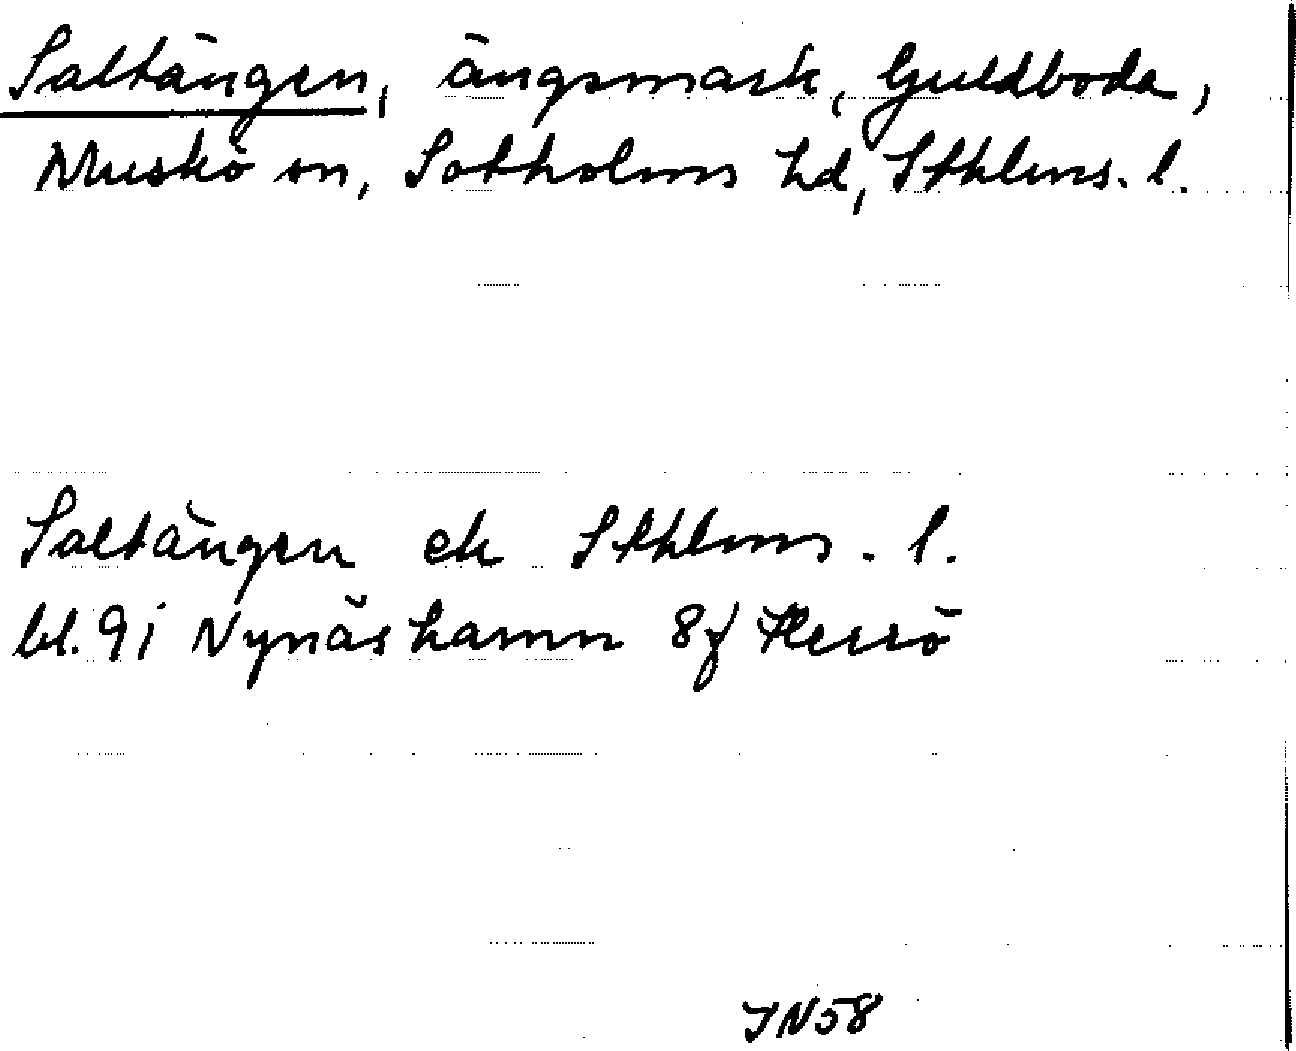 Saltängen, ängsmark, Guldboda,
Muskö sn, Sotholms hd, Sthlms. l.
Saltängen ek Sthlms. l.
bl. 9i Nynäshamn 8f Herrö
JN58